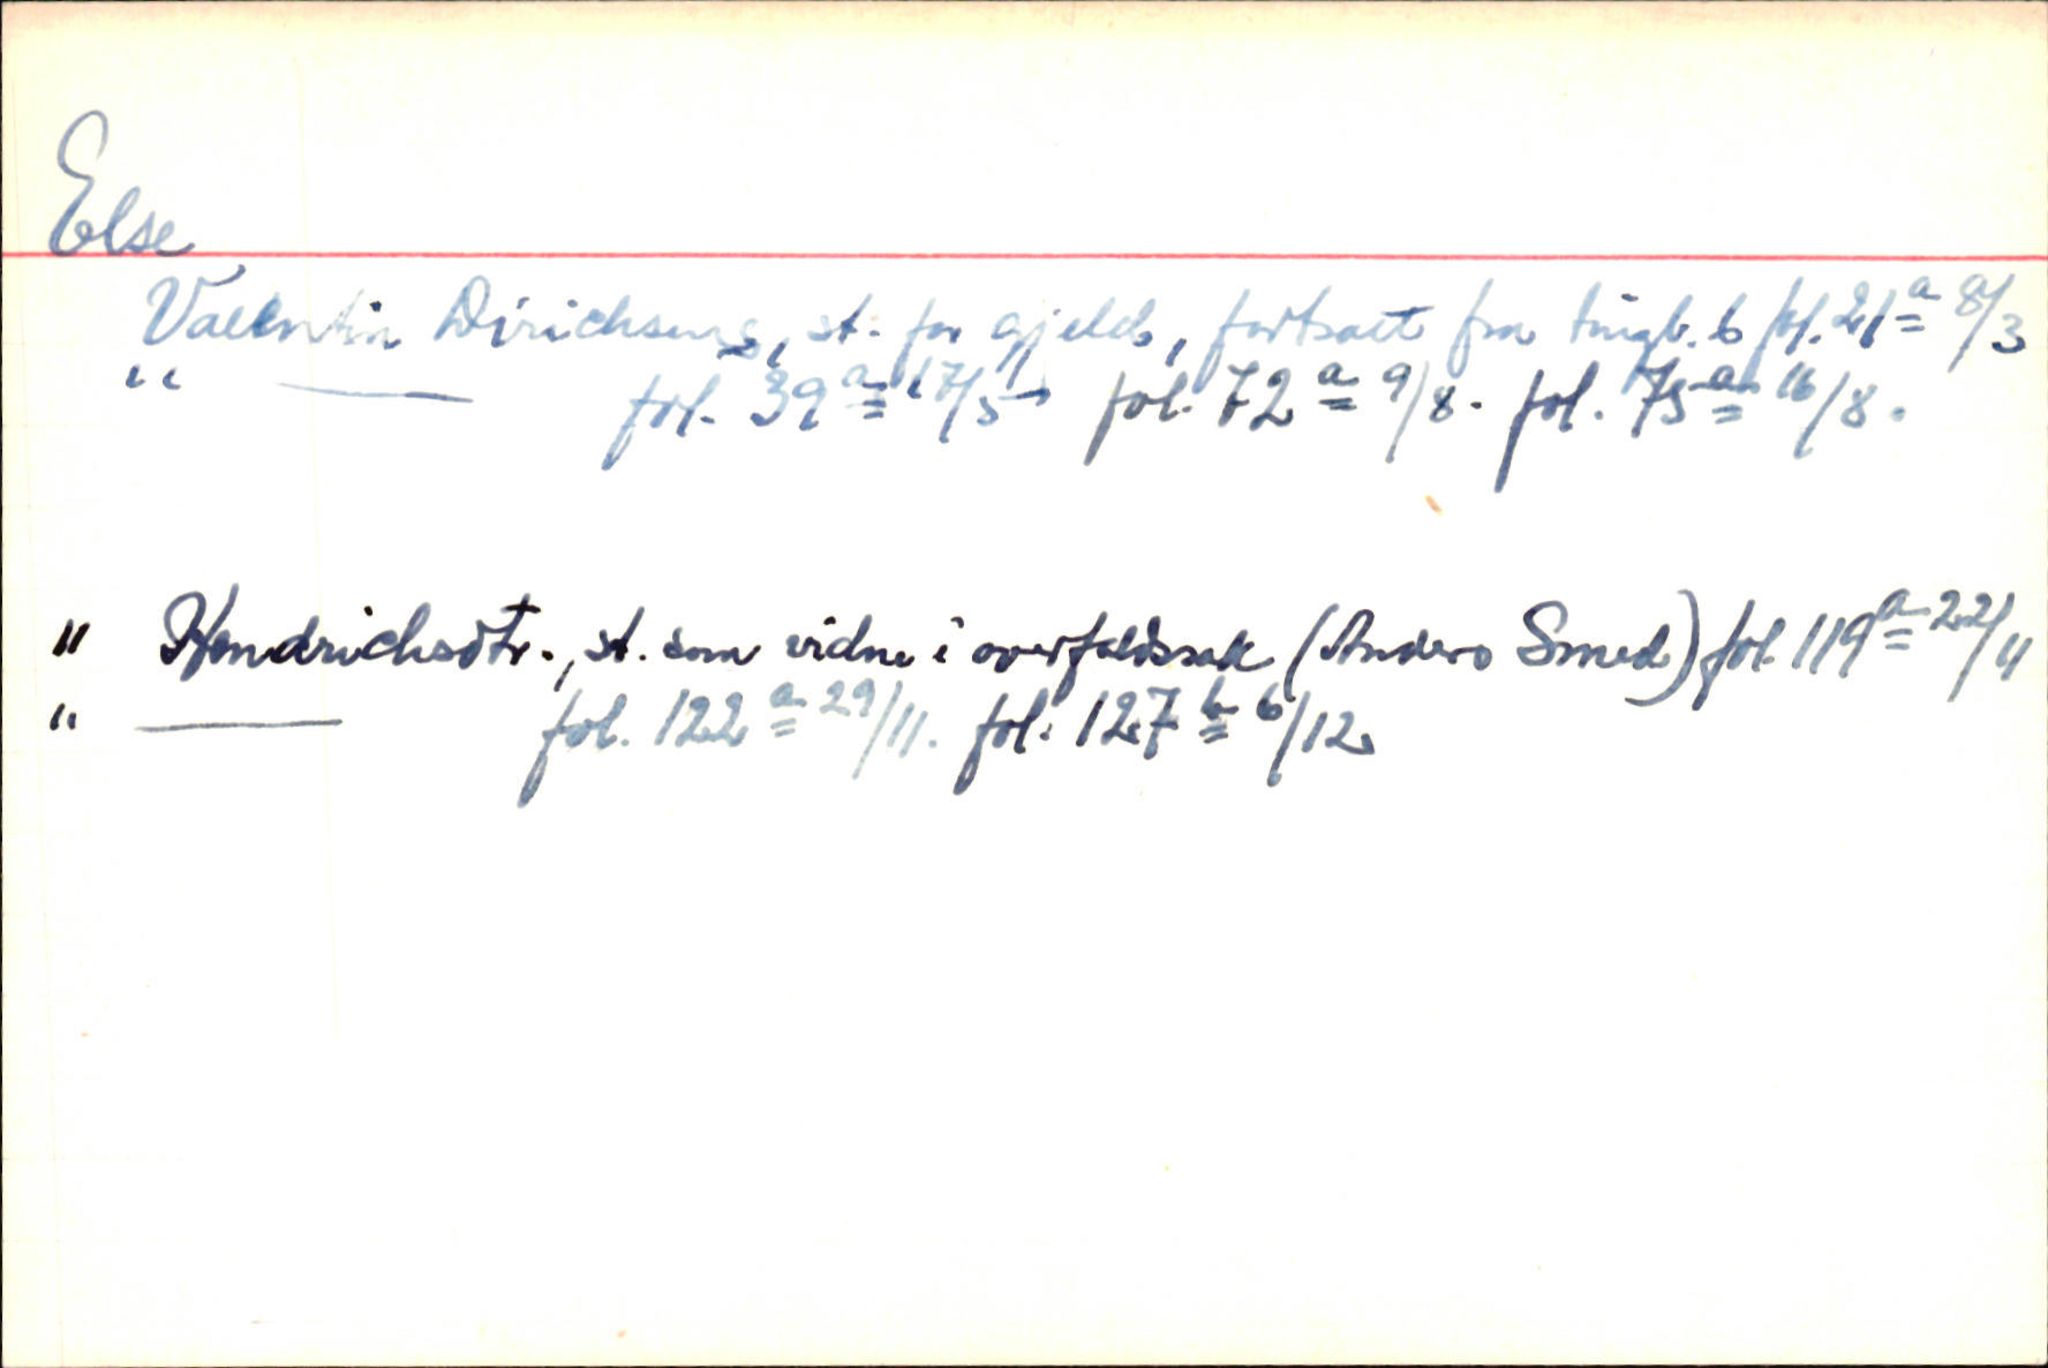 Else
Valentin Dirichsens, st. for gjeld, fortsatt fra tingb. 6 fol. 21a 8/3
" — fol. 39a 17/5 fol. 72a 9/8. fol. 75a 16/8.
" Hendrichsdtr., st. som vidne i overfaldssak (Anders Smed) fol. 119a 22/11
" — fol. 122a 29/11. fol. 127b 6/12.